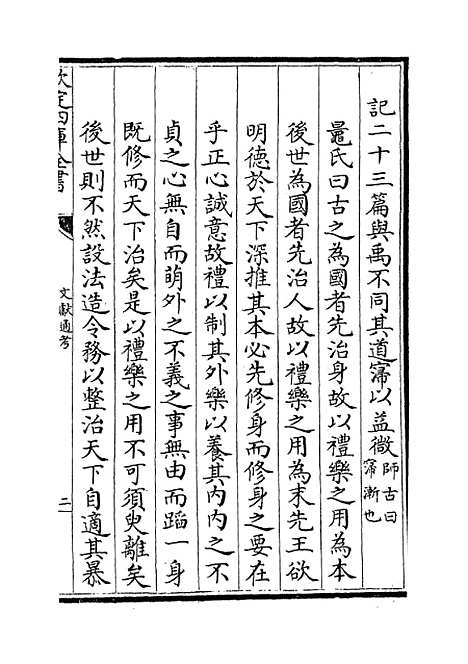 記二十三篇與禹不同其道寖以益微師古曰寖漸也
鼂氏曰古之為國者先治身故以禮樂之用為本
後世為國者先治人故以禮樂之用為末先王欲
明德於天下深推其本必先修身而修身之要在
乎正心誠意故禮以制其外樂以養其內內之不
貞之心無自而萌外之不義之事無由而蹈一身
既修而天下治矣是以禮樂之用不可須臾離矣
後世則不然設法造令務以整治天下自適其暴
欽定四庫全書
文獻通考
二